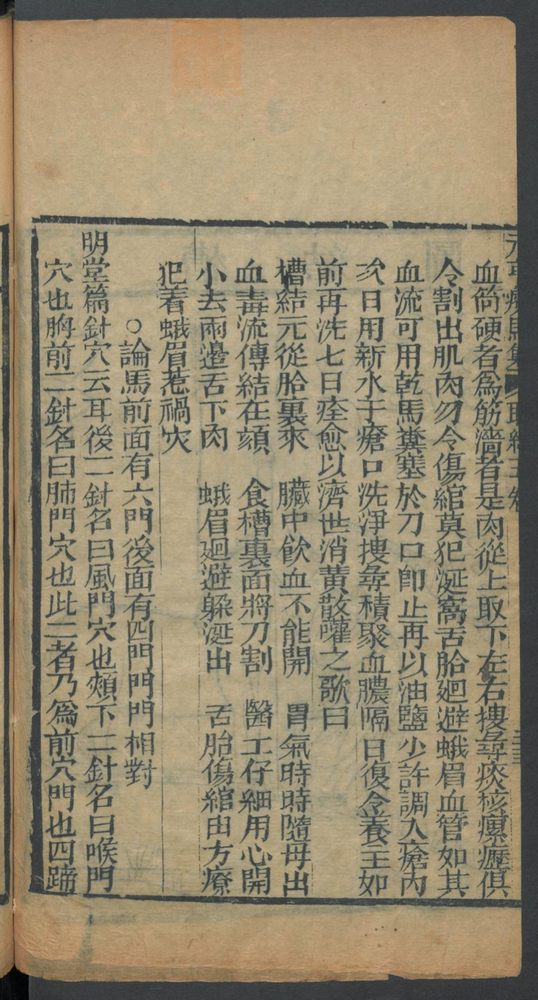 元亨療馬集
血筒硬者為筋濇者是肉從上取下左右摟尋痰核瘰癧俱
令割出肌肉勿令傷綰莫犯涎窩舌胎廻避蛾眉血管如其
血流可用乾馬糞塞於刀口即止再以油鹽少許調入瘡內
次日用新水于瘡口洗淨摟尋積聚血膿隔日復令養主如
前再洗七日痊愈以濟世消黃散嚾之歌曰
槽結元從胎裏來　臟中飲血不能開　胃氣時時隨母出
血毒流傳結在顙　食槽裏面將刀割　醫工仔細用心開
小去兩邊舌下肉　蛾眉廻避躱涎出　舌胎傷綰由方療
犯着蛾眉惹禍灾
○論馬前面有六門後面有四門門門相對
明堂篇針穴云耳後二針名曰風門穴也頰下二針名曰喉門
穴也胷前二針名曰肺門穴也此二者乃為前穴門也四蹄